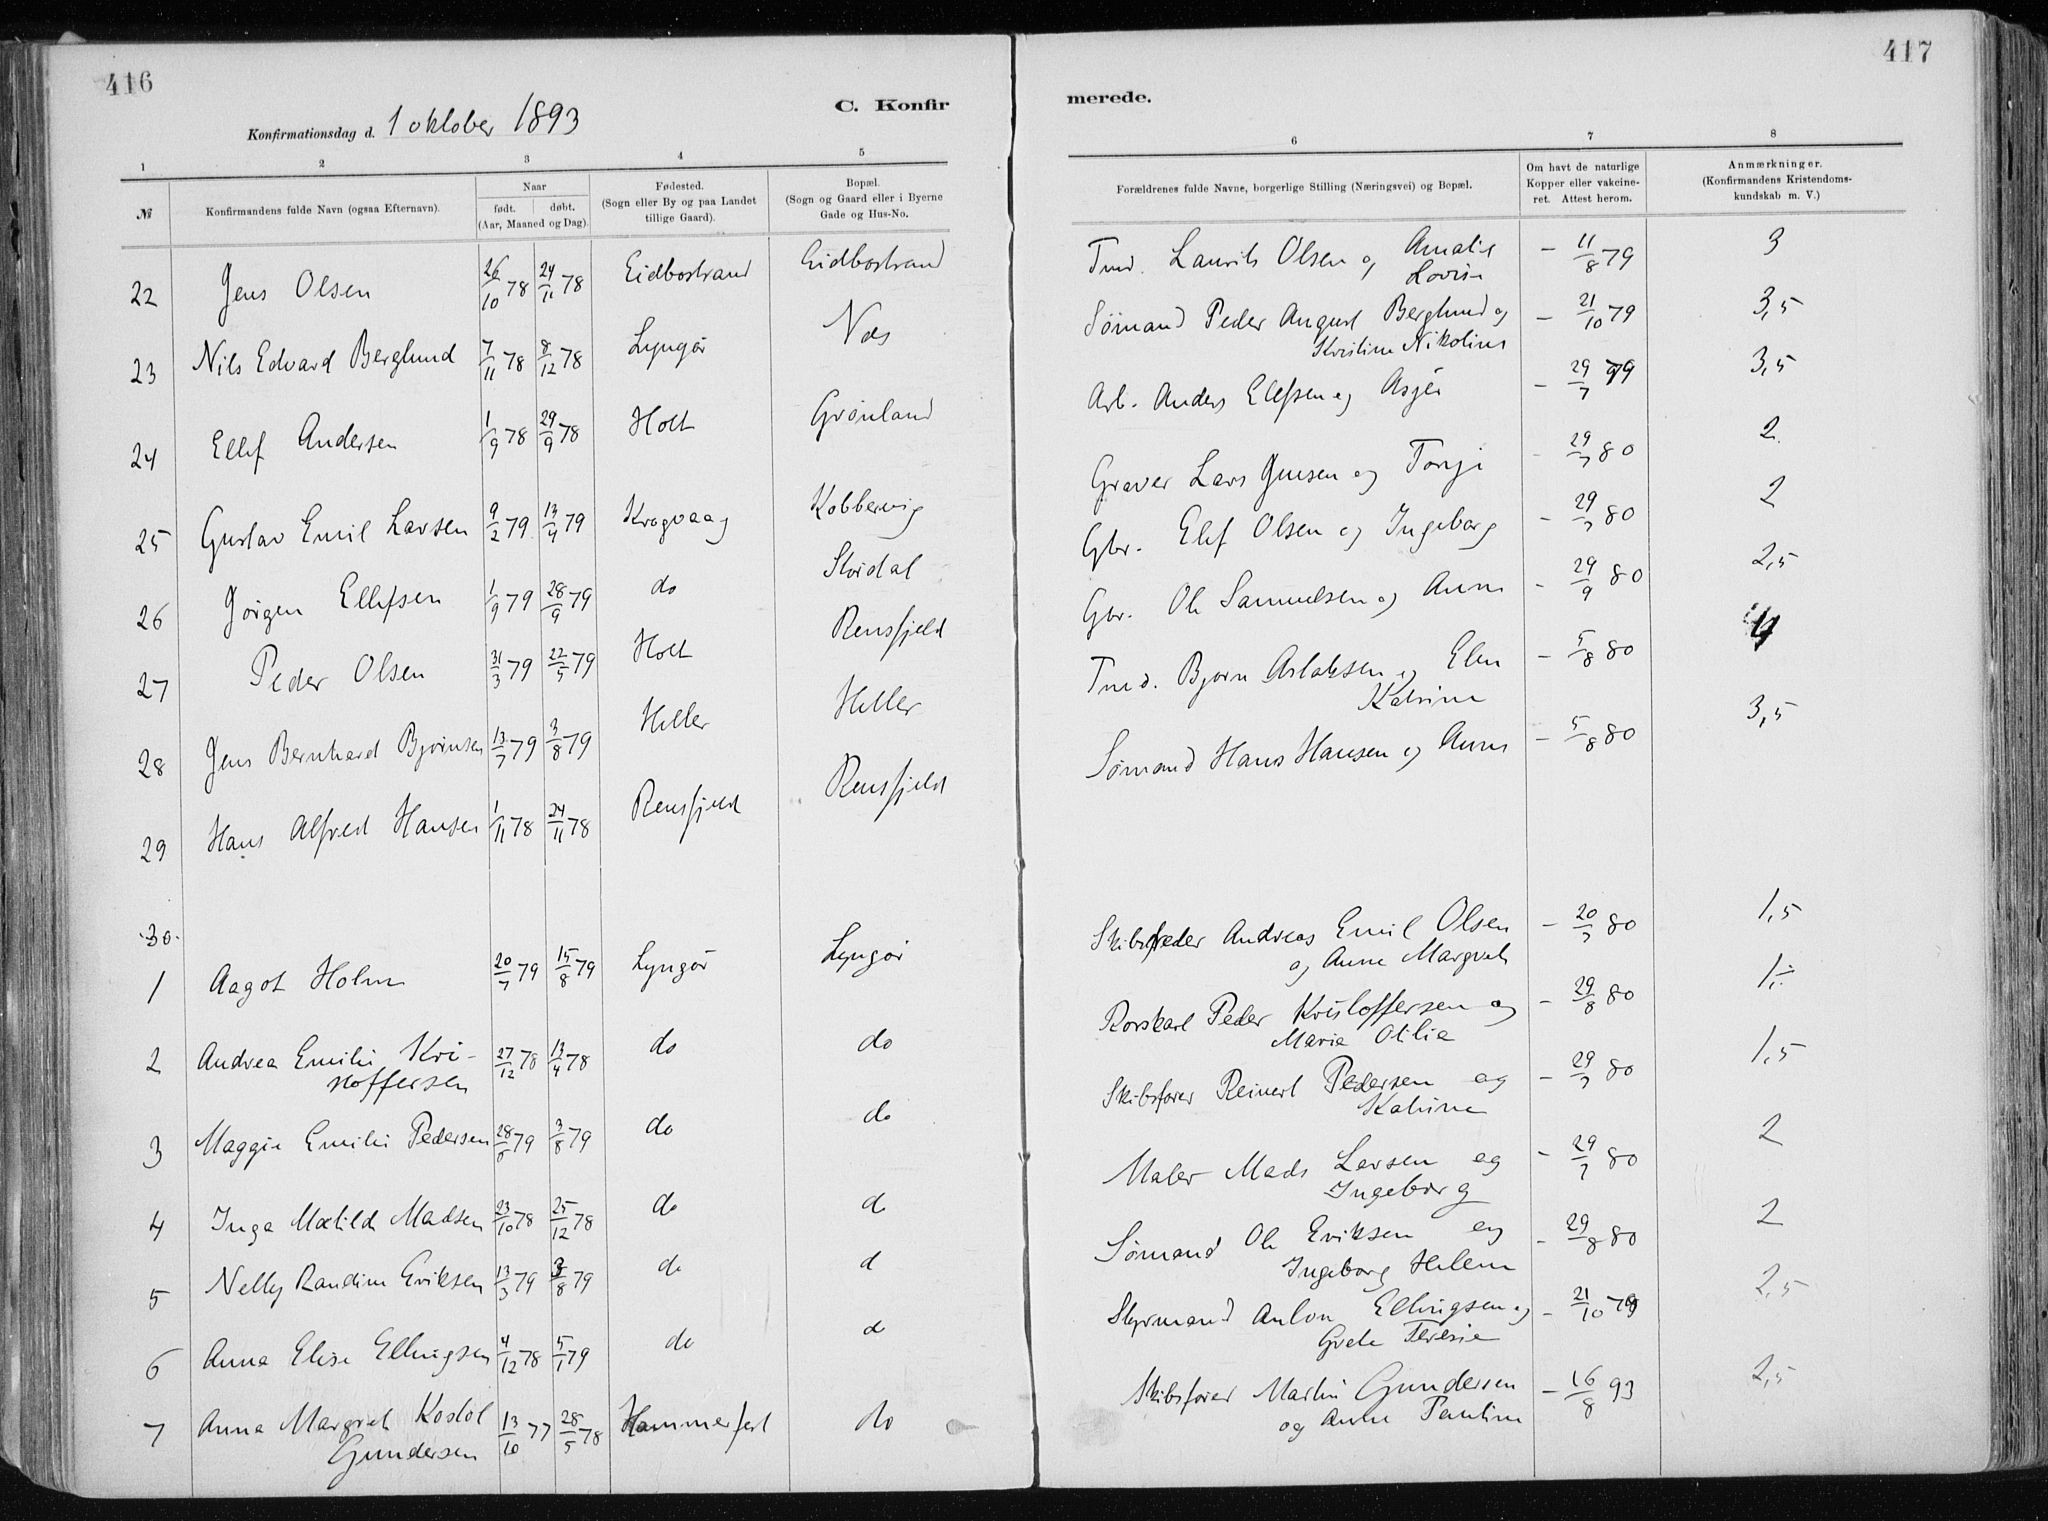 416
417
Konfirmationsdag d. 1 oktober 1893
C. Konfir
merede.
1 2 3 4 5 6 7 8
№
Konfirmandens fulde Navn (ogsaa Efternavn).
Naar
født. døbt.
(Aar, Maaned og Dag).
Fødested.
(Sogn eller By og paa Landet
tillige Gaard).
Bopæl.
(Sogn og Gaard eller i Byerne
Gade og Hus-No.
Forældrenes fulde Navne, borgerlige Stilling (Næringsvei) og Bopæl.
Om havt de naturlige
Kopper eller vakcine-
ret. Attest herom.
Anmærkninger.
(Konfirmandens Kristendoms-
kundskab m. V.)
22 Jens Olsen 26/10 78 24/11 78 Eidbostrand Eidbostrand Tmd. Laurits Olsen og Amalie – 11/8 79 3
Lovise
23 Nils Edvard Berglund 7/11 78 8/12 78 Lyngør Næs Sømand Peder August Berglund og – 21/10 79 3,5
Kristine Nikoline
24 Ellef Andersen 1/9 78 29/9 78 Holt Grønland Arb. Anders Ellefsen og Asjer – 29/7 79 3,5
25 Gustav Emil Larsen 9/2 79 13/4 79 Krogvaag Kobbervig Graver Lars Jensen og Torje – 29/7 80 2
26 Jørgen Ellefsen 1/9 79 28/9 79 do Skordal Gbr. Elef Olsen og Ingeborg – 29/7 80 2
27 Peder Olsen 31/3 79 22/5 79 Holt Rensfjeld Gbr. Ole Samuelsen og Anne – 29/9 80 2,5
28 Jens Bernhard Bjørnsen 13/7 79 3/8 79 Heller Heller Tmd. Bjørn Aslaksen og Elen – 5/8 80 4
Katrine
29 Hans Alfred Hansen 1/11 78 24/11 78 Rensfjeld Rensfjeld Sømand Hans Hansen og Anne – 5/8 80 3,5
30.
1 Aagot Holm 20/7 79 15/8 79 Lyngør Lyngør Skibsreder Andreas Emil Olsen – 20/7 80 1,5
og Anne Margret
2 Andrea Emilie Kri- 27/12 78 13/4 78 do do Rorskarl Peder Kristoffersen og – 29/8 80 1÷
stoffersen Marie Otilie
3 Maggie Emilie Pedersen 28/6 79 3/8 79 do do Skibsfører Reinert Pedersen og – 29/7 80 1,5
Katrine
4 Inga Matilde Madsen 23/10 78 25/12 78 do do Maler Mads Larsen og – 29/7 80 2
Ingeborg
5 Nelly Randine Eriksen 13/3 79 3/8 79 do d Sømand Ole Eriksen og – 29/8 80 2
Ingeborg Helene
6 Anna Elise Ellingsen 4/12 78 5/1 79 do d Styrmand Anton Ellingsen og – 21/10 79 2,5
Grete Teresie
7 Anna Margret Kostol 13/10 77 28/5 78 Hammerfest do Skibsfører Martin Gundersen – 16/8 93 2,5
Gundersen og Anne Pauline